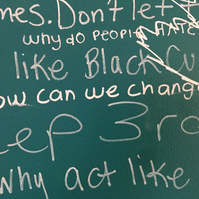 mes. Don't let t
why do people HATE
like Black Cu
ow can we change
eep 3rd
why act like